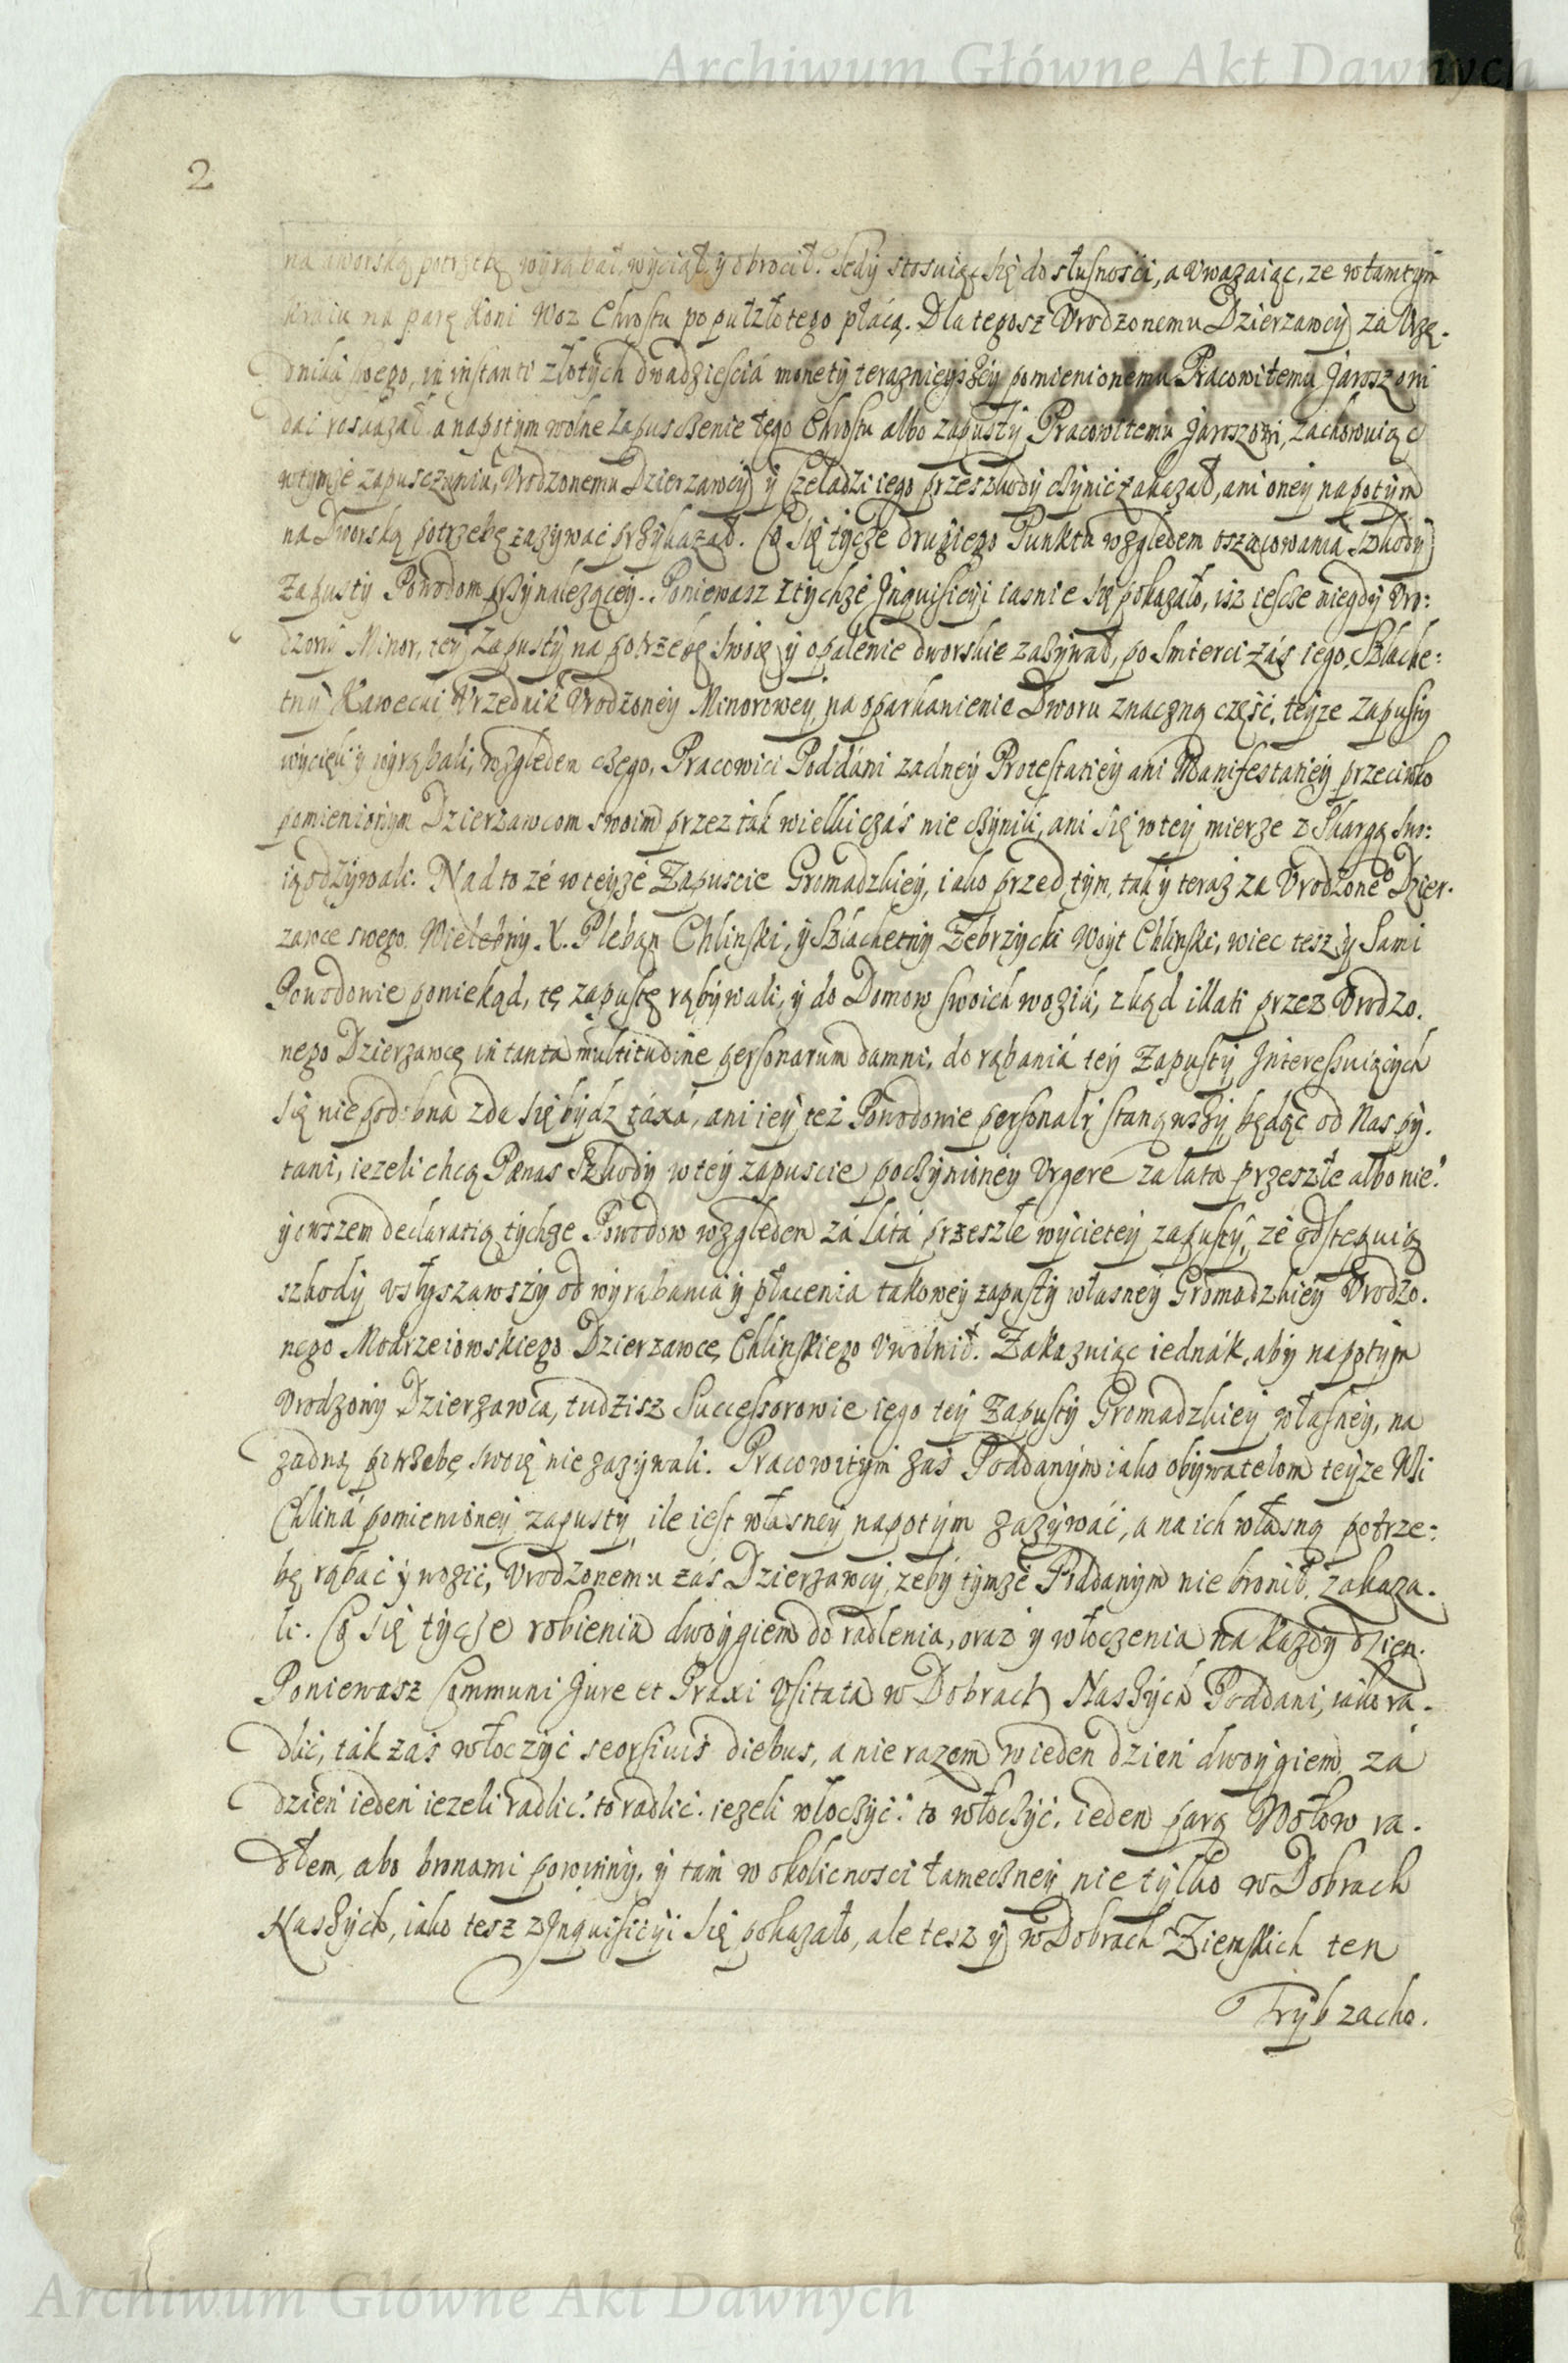 Archiwum Główne Akt Dawnych
2
na dworską potrzebę wyrąbał, wyciął y obrocił. Tedy stosuiąc się do słusnosci, a Uwazaiąc, ze w tamtym
kraiu na parę Koni Woz Chrostu po pułzłotego płácą. Dla tegosz Urodzonemu Dzierzawcy za Urzę-
dniká swego, in instanti złotych dwadziesciá monety teraznieyszey pomienionemu Pracowitemu Jaroszowi
dac roskazał, a napotym wolne Zapusczenie tego Chrostu albo zapusty Pracowitemu Jaroszowi, zachowuiąc
w tymze zapusczaniu, Urodzonemu Dzierzawcy y Czeladzi iego przeszkody czynic zakazał, ani oney napotym
na Dworską potrzebę zazywac przykazał. Co się tycze drugiego Punktu względem oszacowania Szkody
Zapusty Powodom przynalezącey. Poniewasz z tychze Inquisicyi iasnie się pokazało, isz iescze niegdy Uro:
dzony Minor, tey Zapusty na potrzebę swoię y opalenie dworskie zazywał, po smierci zás iego, Szlache:
tny Kawecki Urzednik Urodzoney Minorowey, na oparkanienie Dworu znaczną część, teyze Zapusty
wycięli y wyrąbali, względem czego, Pracowici Poddáni zadney Protestatiey ani Manifestatiey przeciwko
pomienionym Dzierzawcom swoim przez tak wielki czás nie czynili, ani się w tey mierze z Skargą swo:
ią odzywali. Nad to zé w teyze Zapuscie Gromadzkiey, iako przed tym, tak y teraz za Urodzone⁰ Dzier-
zawce swego, Wielebny X. Pleban Chlinski, y Szlachetny Zebrzycki Woyt Chlinski, wiec tesz y Sami
Powodowie poniekąd, tę zapustę rąbywali, y do Domow swoich wozili, zkąd illati przez Urodzo-
nego Dzierzawcę in tanta multitudine personarum damni, do rąbaniá tey Zapusty Interessuiących
się niepodobna zda się bydz táxá, ani iey też Powodowie personalr stanąwszy będąc od Nas py-
tani, iezeli chcą Pænas Szkody w tey zapuscie poczynioney Urgere za lata przeszłe albo nie?
y owszem declaratią tychze Powodow względem zá látá przeszłe wycietey zapusty, zé odstępuią
szkody usłyszawszy od wyrąbania y płacenia takowey zapusty własney Gromadzkiey Urodzo-
nego Modrzeiowskiego Dzierzawcę Chlinskiego Uwolnił. Zakazuiąc iednák, aby napotym
Urodzony Dzierzawca, tudzisz Successorowie iego tey Zapusty Gromadzkiey własney, na
zadną potrzebę swoię nie zazywali. Pracowitym zas Poddanym iako obywatelom teyze Wsi
Chliná pomienioney zapusty, ile iest własney napotym zazywáć, a na ich własną potrze:
bę rąbać y wozić, Urodzonemu zás Dzierzawcy, zeby tymze Poddanym nie bronił, zakaza-
li. Co się tycze robienia dwoygiem do radlenia, oraz y włoczenia na kazdy dzien.
Poniewasz Communi Jure et Praxi Usitata w Dobrach Naszych Poddani, iako ra-
dlić, tak zás włoczyć seorsivis diebus, a nie razem w ieden dzien dwoygiem, zá
dzien ieden iezeli radlić: to radlic. iezeli włoczyć: to włoczyć, ieden parą Wołow ra-
dłem, abo bronami powinny, y tam w okolicnosci tameczney nie tylko w Dobrach
Naszych, iako tesz z Inquisicyi się pokazało, ale tesz y w Dobrach Ziemskich ten
Tryb zacho-
Archiwum Główne Akt Dawnych